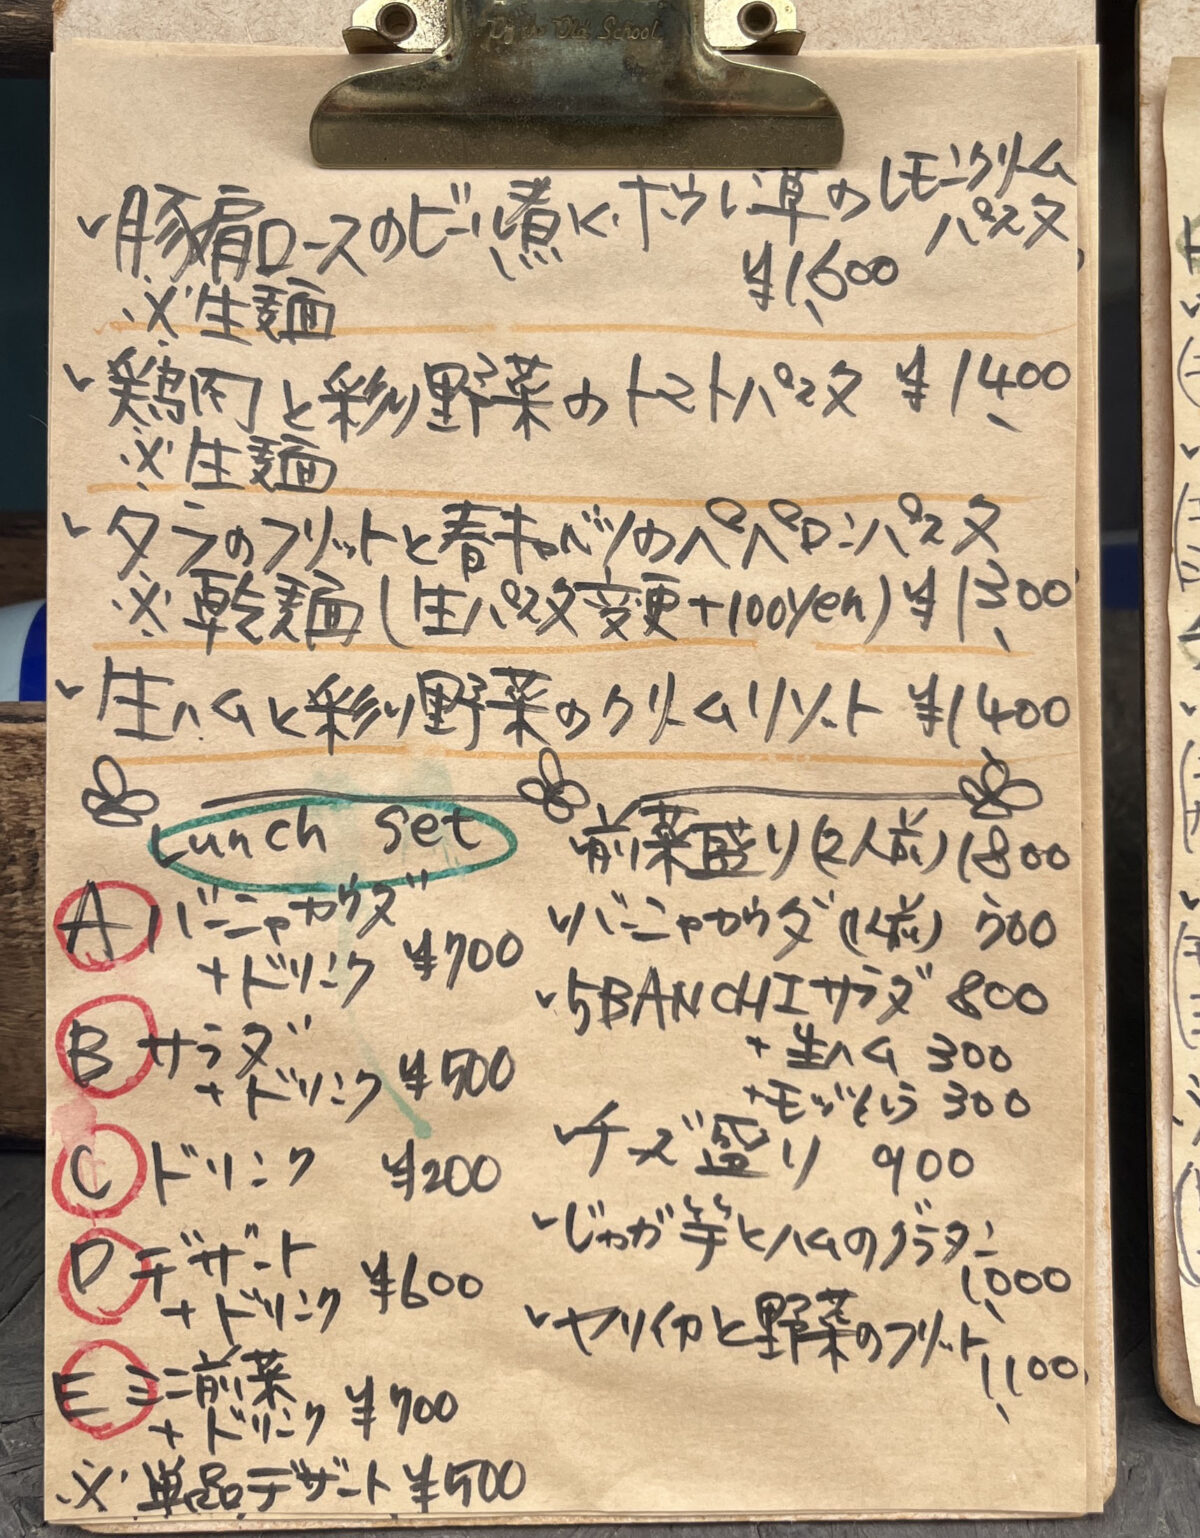 ✓豚肩ロースのビール煮とホウレン草のレモンクリームパスタ
¥1,600
※生麺
✓鶏肉と彩り野菜のトマトパスタ ¥1,400
※生麺
✓タラのフリットと春キャベツのペペロンパスタ
※乾麺(生パスタ変更+100yen) ¥1,300
✓生ハムと彩り野菜のクリームリゾット ¥1,400
Lunch set
A バーニャカウダ
+ドリンク ¥700
B サラダ
+ドリンク ¥500
C ドリンク ¥200
D デザート
+ドリンク ¥600
E ミニ前菜
+ドリンク ¥700
※単品デザート ¥500
前菜盛り(2人前) 1,800
✓バーニャカウダ(1人前) 700
✓5BANCHIサラダ 800
+生ハム 300
+モッツァレラ 300
✓チーズ盛り 900
✓じゃが芋とハムのグラタン
1,000
✓ヤリイカと野菜のフリット
1,100